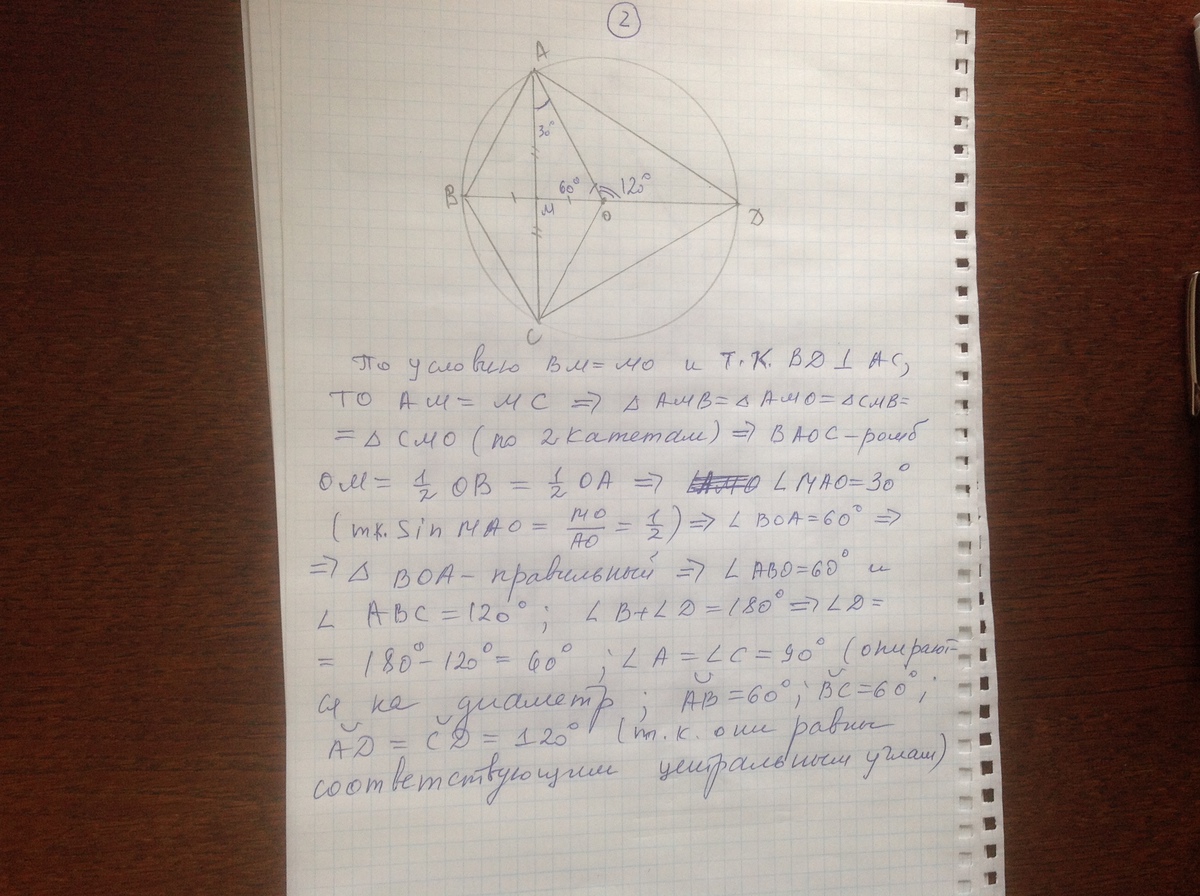 2
A
30°
B
60°
120°
M
O
D
C
По условию BM = MO и т.к. BD ⊥ AC,
то AM = MC ⇒ △ AMB = △ AMO = △ CMB =
= △ CMO (по 2 катетам) ⇒ BAOC – ромб
OM = 1/2 OB = 1/2 OA ⇒ ∠ MAO = 30°
(т.к. Sin MAO = MO/AO = 1/2) ⇒ ∠ BOA = 60° ⇒
⇒ △ BOA – правильный ⇒ ∠ ABO = 60° и
∠ ABC = 120° ; ∠ B + ∠ D = 180° ⇒ ∠ D =
= 180° – 120° = 60° ; ∠ A = ∠ C = 90° (опирают-
ся на диаметр ; ᴗAB = 60° ; ᴗBC = 60° ;
ᴗAD = ᴗCD = 120° (т.к. они равны
соответствующим центральным углам)